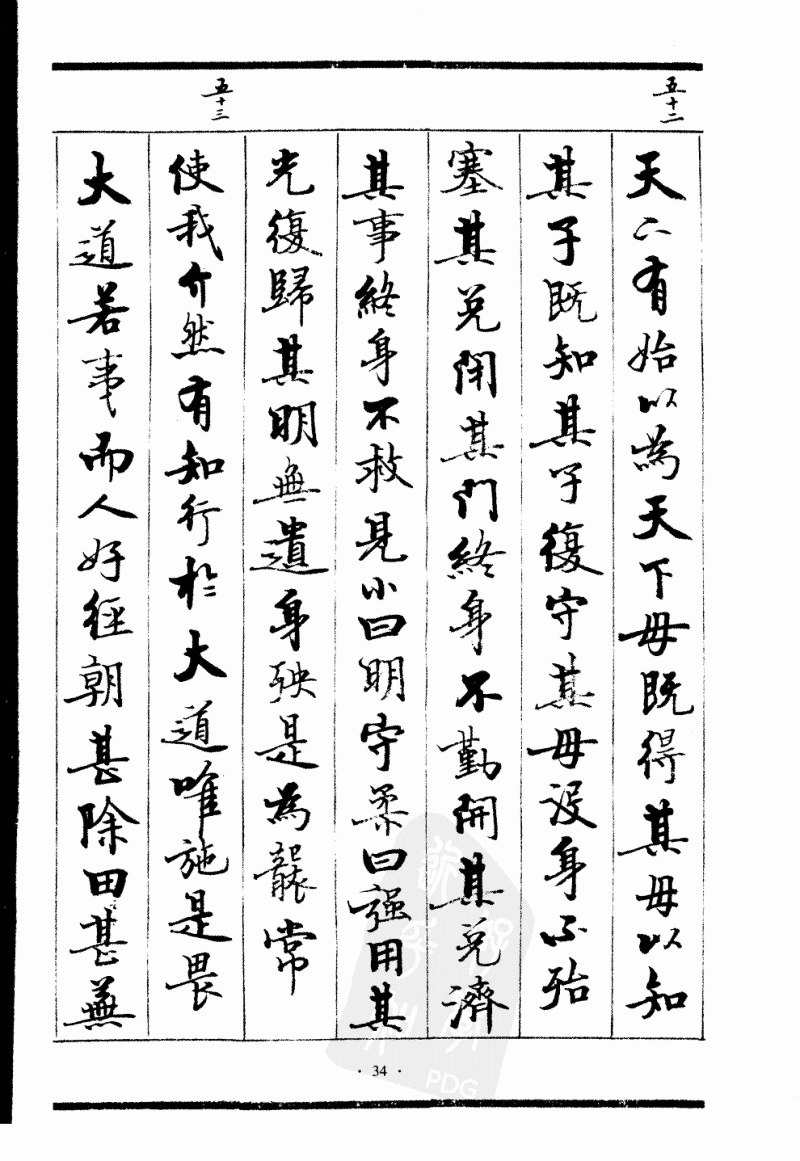 五十二
天下有始以為天下母既得其母以知
其子既知其子復守其母沒身不殆
塞其兌閉其門終身不勤開其兌濟
其事終身不救見小曰明守柔曰強用其
光復歸其明無遺身殃是為襲常
五十三
使我介然有知行於大道唯施是畏
大道若事而人好徑朝甚除田甚蕪
· 34 ·
PDG